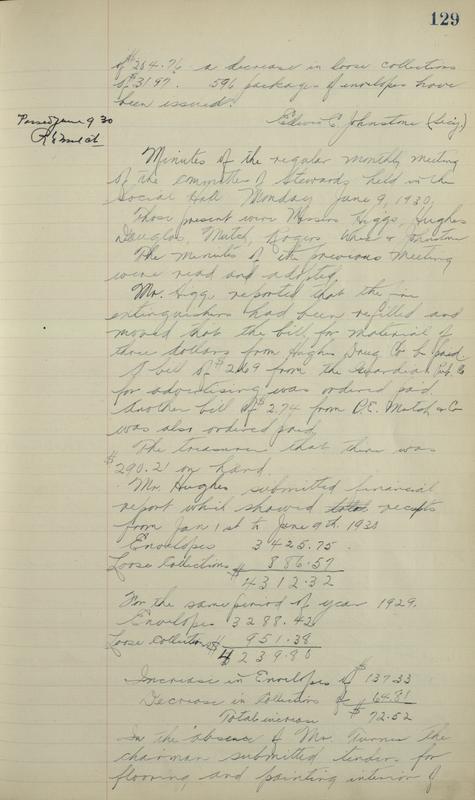 129
of $264.76 a decrease in loose collections
of $31.97. 596 packages of envelopes have
been issued.
Edwin C. Johnstone (Secy.)
Passed June 9 30
Minutes of the regular monthly meeting
of the committee of Stewards held in the
Social Hall Monday June 9, 1930,
Those present were Messrs Higgs, Hughes
Douglas, Mutch, Rogers & Johnstone
The Minutes of the previous Meeting
were read and adopted
Mr. Higgs reported that the fire
extinguishers had been refilled and
moved that the bill for material of
three dollars from Hughes Drug Co be paid.
A bill of $2.69 from the Guardian Pub. Co
for advertising was ordered paid.
Another bill of $2.74 from R.E. Mutch & Co
was also ordered paid
The treasurer that there was
$290.21 on hand.
Mr. Hughes submitted financial
report which showed total receipts
from Jan 1st to June 9th. 1930
Envelopes 3425.75
Loose Collections 886.57
$4312.32
For the same period of year 1929.
Envelopes 3288.42
Loose Collections $951.38
4239.80
Increase in Envelopes of $137.33
Decrease in Collections of $64.81
Total increase $72.52
In the absence of Mr. Turner the
chairman submitted tenders for
flooring and painting interior of